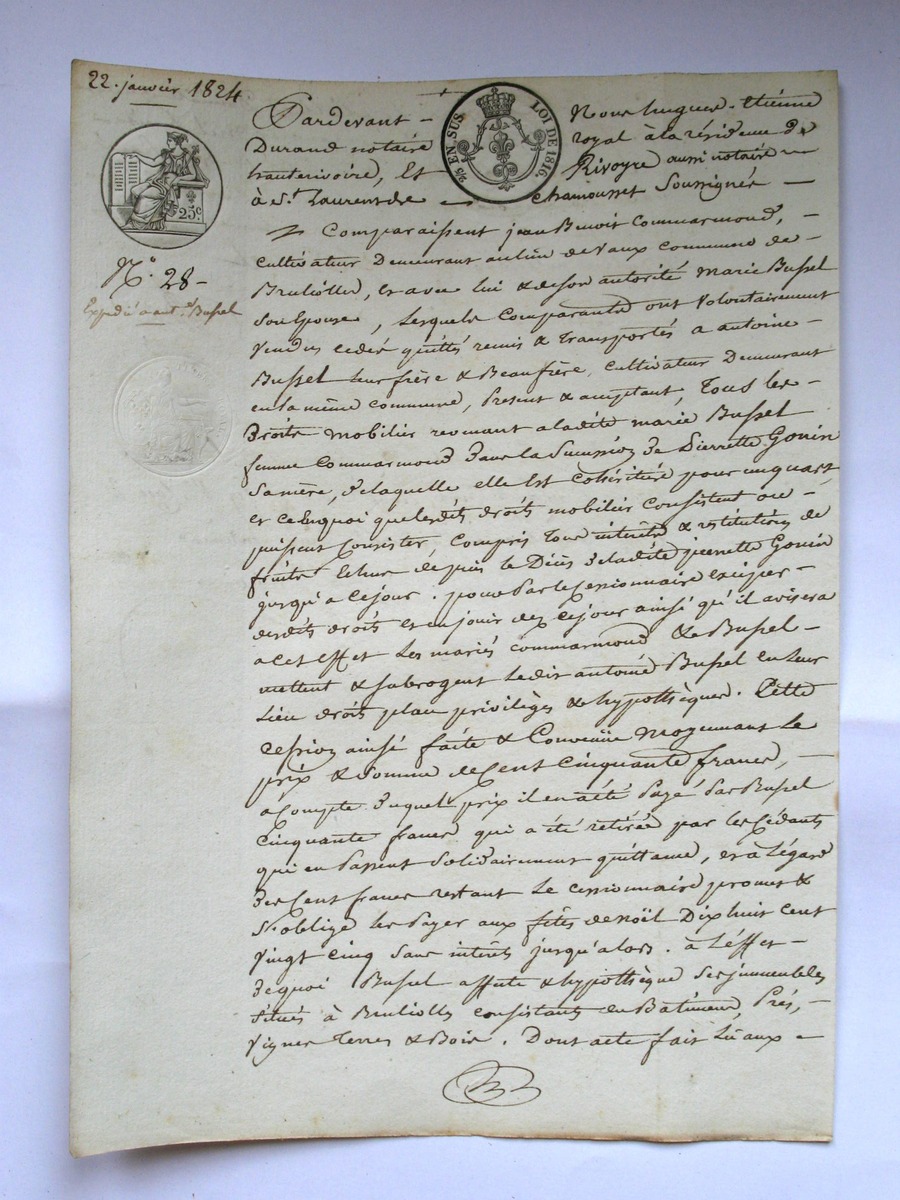 22. janvier 1824
2/5 EN SUS LOI DE 1816.
25c
N.° 28-
Expédié a ant. Bussel
Pardevant - Nous hugues-Etienne
Durand notaire royal à la résidence de
hauterivoire, Et Rivoyre aussi notaire
à St. Laurent de Chamousset Soussignés
Comparaissent jean Benoit Commarmond,
cultivateur Demeurant au lieu de Vaux commune de
Brulioller, et avec lui & de son autorité marie Bussel
son épouse, Lesquels Comparants ont volontairement
vendus cédés quittés remis & transportés a antoine
Bussel leur frère & Beaufrère, cultivateur Demeurant
en la même commune, Présent & acceptant, Tous les
Droits mobiliers revenant a ladite marie Bussel
femme Commarmond dans la Succession de Pierrette Gonin
sa mère, de laquelle elle Est cohéritière pour un quart
et ce En quoi que lesdits droits mobiliers consistent ou
puissent Consister, Compris Tous intérêts & restitutions de
fruits Echus depuis le Décès de ladite pierrette Gonin
jusqu'a ce jour. pour Par le Cessionnaire exciper
desdits droits et en jouir dez ce jour ainsi qu'il avisera
a cet effet Les mariés commarmond & Bussel
mettent & subrogent Ledit antoine Bussel en Leur
Lieu droits place privilèges & hypothèques. Cette
cession ainsi faite & Convenüe moyennant Le
prix & Somme de Cent Cinquante francs,
a Compte duquel prix il en a été Payé Par Bussel
Cinquante francs qui a été retirée par les Cédants
qui en Passent Solidairement quittance, et à l'égard
des Cent francs restant Le cessionnaire promet &
S'oblige les Payer aux fêtes de noël Dix huit cent
vingt cinq sans intérêts jusqu'alors. à l'effet
de quoi Bussel affecte & hypothèque ses immeubles
situés à Brulioller consistants en Bâtiment, Prés,
vignes Terres & Bois. Dont acte fait Lu aux